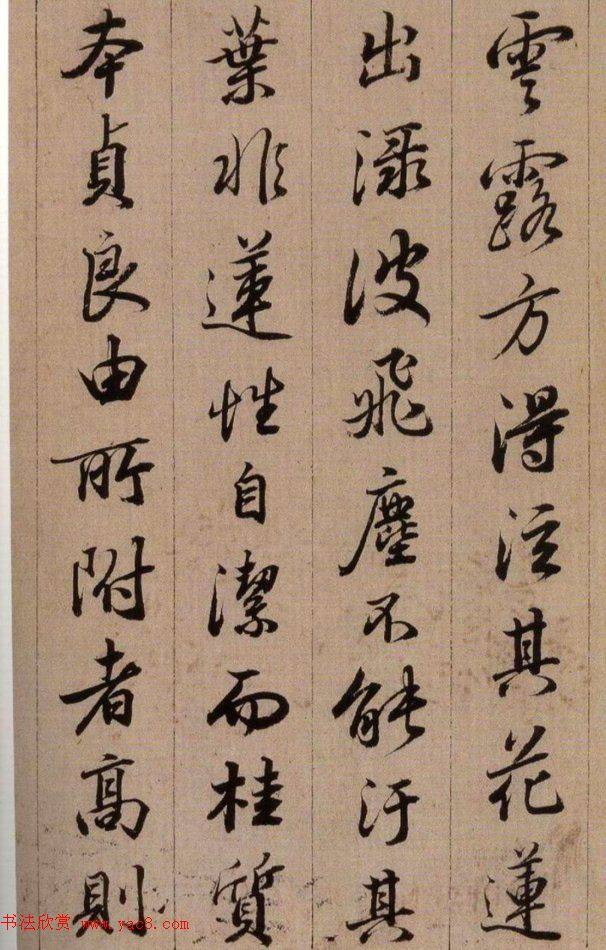 雲露方得泫其花蓮
出渌波飛塵不能汙其
葉非蓮性自潔而桂質
本貞良由所附者高則
书法欣赏 www.yac8.com